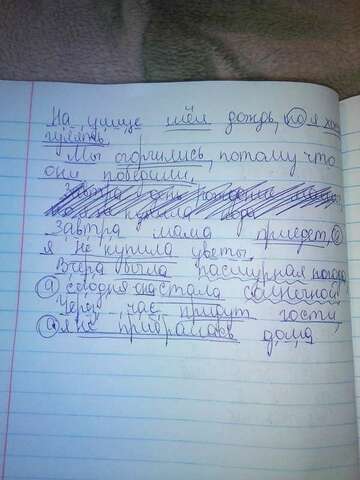 На улице шёл дождь, но я хочу
гулять.
Мы огорчились, потому что
они победили.
Завтра мама приедет, а
я не купила цветы.
Вчера была пасмурная погода,
а сегодня она стала солнечной
Через час придут гости,
а я не прибралась дома